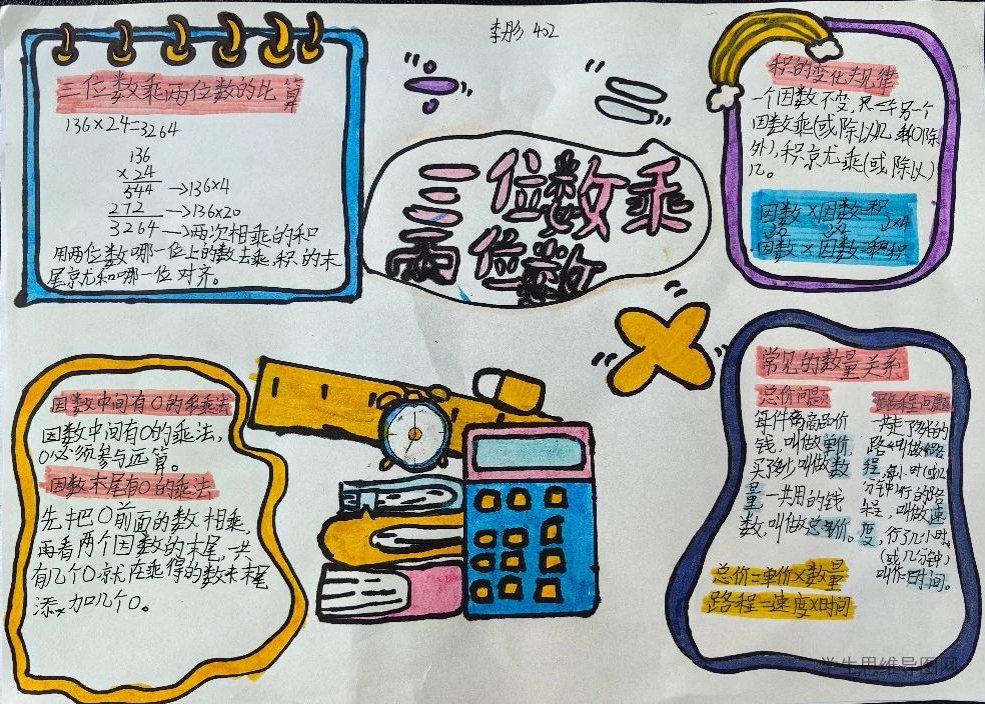 李彤 402
三位数乘两位数的比算
136×24=3264
136
×24
544 →136×4
272 →136×20
3264 →两次相乘的和
用两位数哪一位上的数去乘,积的末
尾就和哪一位对齐。
三位数乘
两位数
积的变化规律
一个因数不变,另一个
因数乘(或除以)几,(0除
外),积就乘(或除以)
几。
因数×因数=积
因数×因数=积
因数中间有0的乘法
因数中间有0的乘法,
0必须参与运算。
因数末尾有0的乘法
先把0前面的数相乘,
再看两个因数的末尾,共
有几个0就在乘得的数末尾
添加几个0。
常见的数量关系
总价问题
每件商品价
钱,叫做单价,
买了多少,叫做数
量,一共用的钱
数,叫做总价。
路程问题
一共走了多少的
路,叫做路
程,每小时(或
分钟)行的路
程,叫做速
度,行了几小时
(或几分钟)
叫作时间。
总价=单价×数量
路程=速度×时间
学生思维导图网